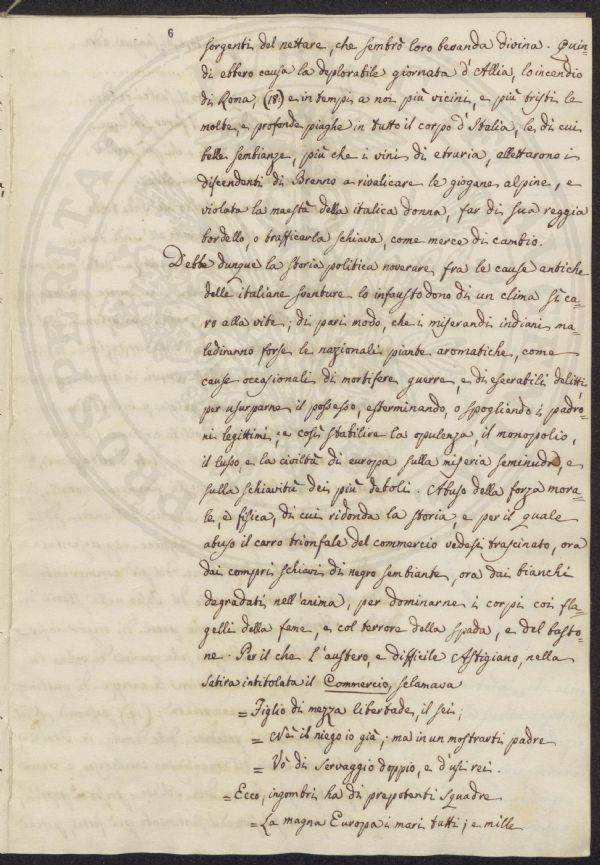 6
sorgenti del nettare, che sembrò loro bevanda divina. Quin=
di ebbero causa la deplorabile giornata d'Allia, lo incendio
di Roma (18) e in tempi a noi più vicini, e più tristi le
molte, e profonde piaghe in tutto il corpo d'Italia, le di cui
belle sembianze, più che i vini di etruria, allettarono i
discendenti di Brenno a rivalicare le giogane alpine, e
violata la maestà della italica donna, far di sua reggia
bordello, o trafficarla schiava, come merce di cambio.
Debbe dunque la storia politica noverare fra le cause antiche
delle italiane sventure lo infausto dono di un clima sì ca=
ro alla vite; di pari modo, che i miserandi indiani ma=
lediranno forse le nazionali piante aromatiche, come
cause occasionali di mortifere guerre, e di esecrabili delitti
per usurparne il possesso, esterminando, o spogliando i padro=
ni legittimi; e così stabilire la opulenza, il monopolio,
il lusso e la civiltà di europa sulla miseria seminuda, e
sulla schiavitù dei più deboli. Abuso della forza mora=
le, e fisica, di cui ridonda la storia, e per il quale
abuso il carro trionfale del commercio vedesi trascinato, ora
dai compri schiavi di negro sembiante, ora dai bianchi
degradati nell'anima, per dominarne i corpi coi fla=
gelli della fame, e col terrore della spada, e del basto=
ne. Per il che l'austero, e difficile Astigiano, nella
satira intitolata il Commercio, sclamava
= Figlio di mezza libertade, il sei;
= Nè il niego io già; ma in un mostrarti padre
= Vò di servaggio doppio, e d'usi rei.
= Ecco, ingombri ha di prepotenti squadre
= La magna Europa i mari tutti; e mille